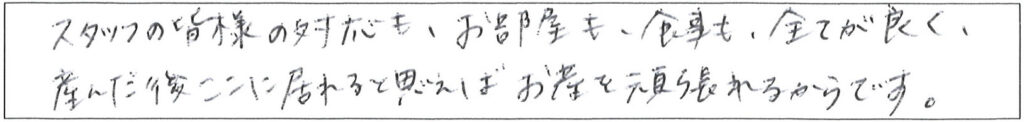 スタッフの皆様の対応も、お部屋も、食事も、全てが良く、
産んだ後ここに居れると思えばお産を頑張れるからです。